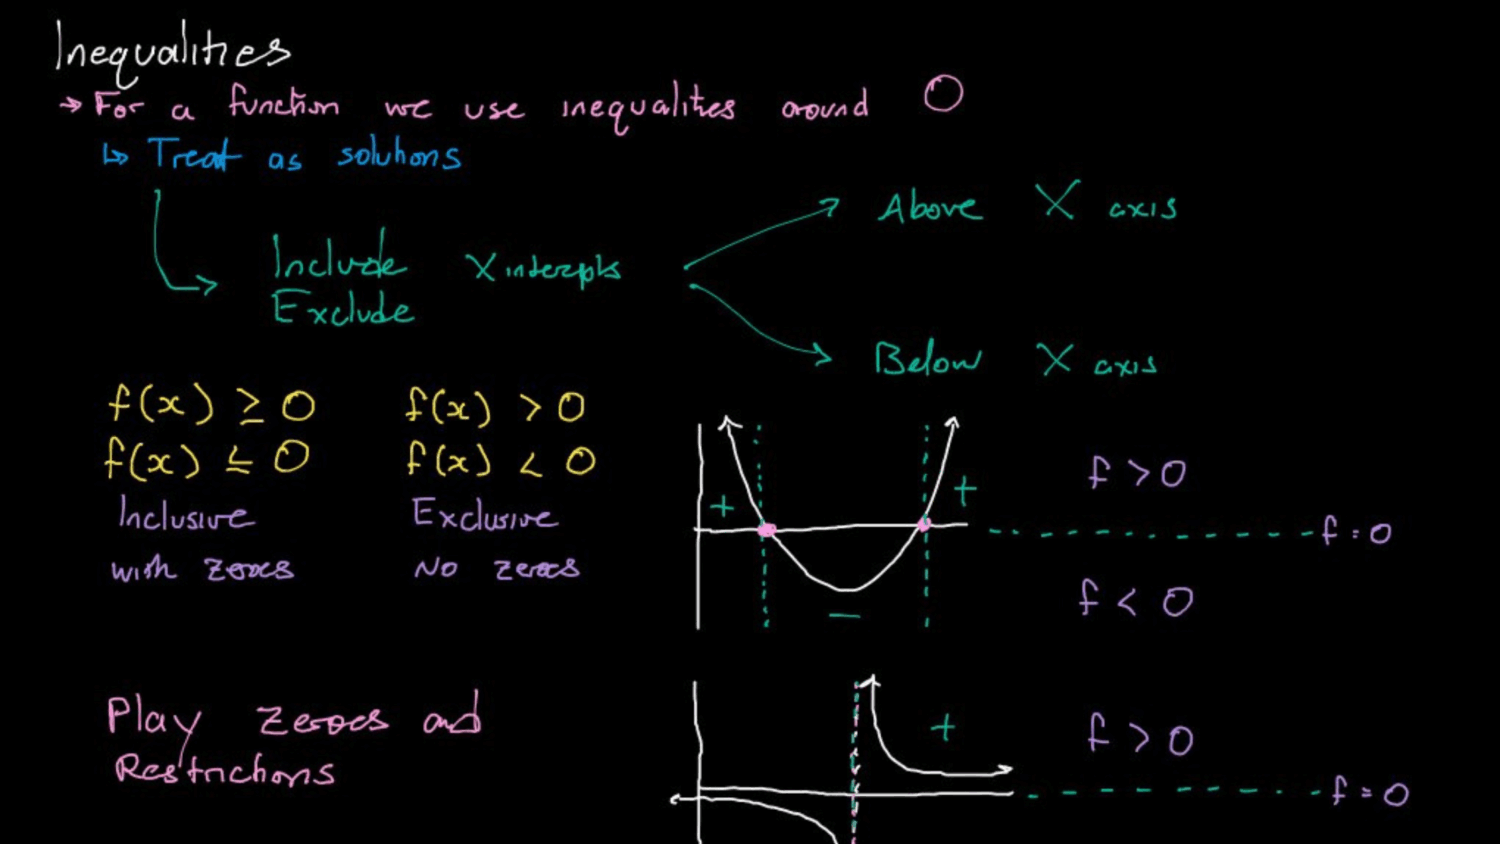 Inequalities
→ For a function we use inequalities around 0
↳ Treat as solutions
Above X axis
Include X intercepts
Exclude
Below X axis
f(x) ≥ 0 f(x) > 0
f(x) ≤ 0 f(x) < 0
Inclusive Exclusive
with zeroes No zeroes
+ + f > 0
f = 0
− f < 0
Play zeroes and
Restrictions
+ f > 0
f = 0